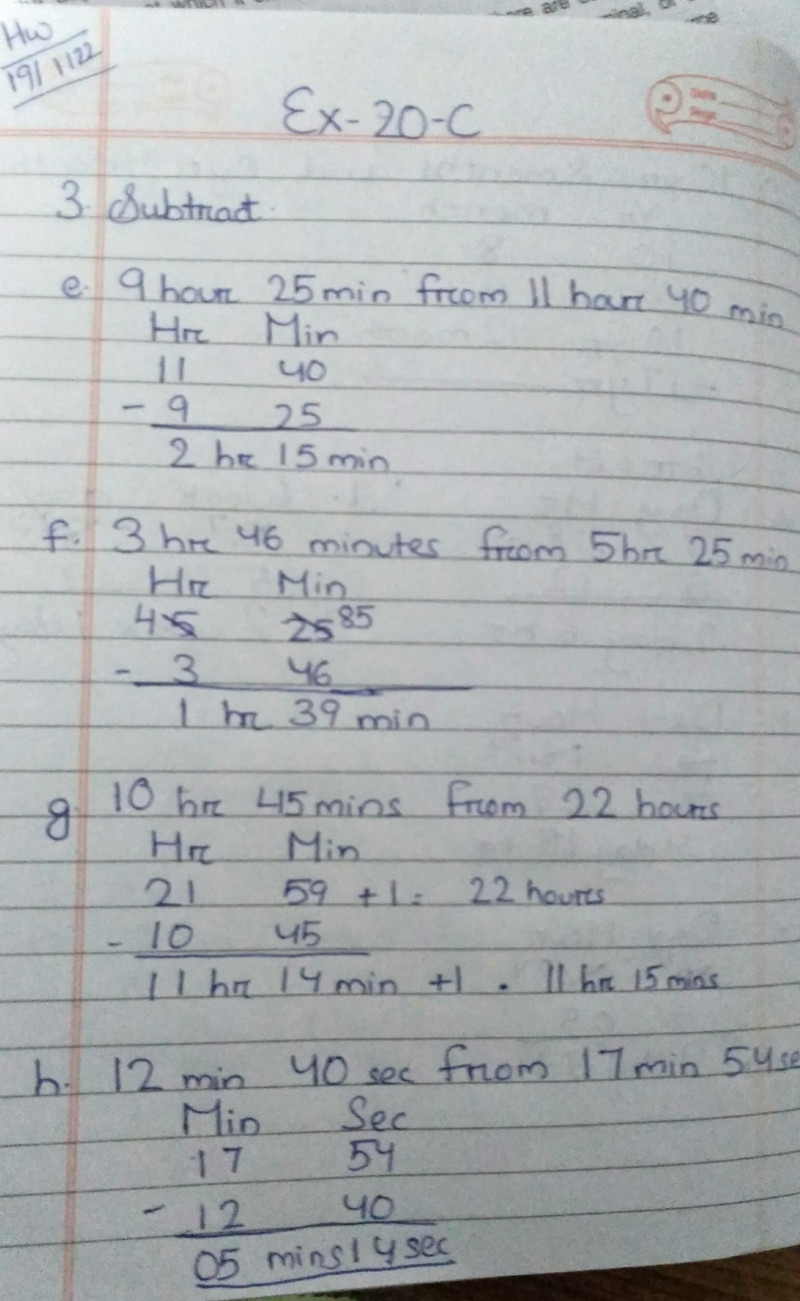 HW
19/1/22
Ex-20-C
3. Subtract.
e. 9 hour 25 min from 11 hour 40 min
Hr Min
11 40
- 9 25
2 hr 15 min
f. 3 hr 46 minutes from 5 hr 25 min
Hr Min
4 5 25 85
- 3 46
1 hr 39 min
g. 10 hr 45 mins from 22 hours
Hr Min
21 59 + 1 = 22 hours
- 10 45
11 hr 14 min +1 . 11 hr 15 mins
h. 12 min 40 sec from 17 min 54 se
Min Sec
17 54
- 12 40
05 mins 14 sec